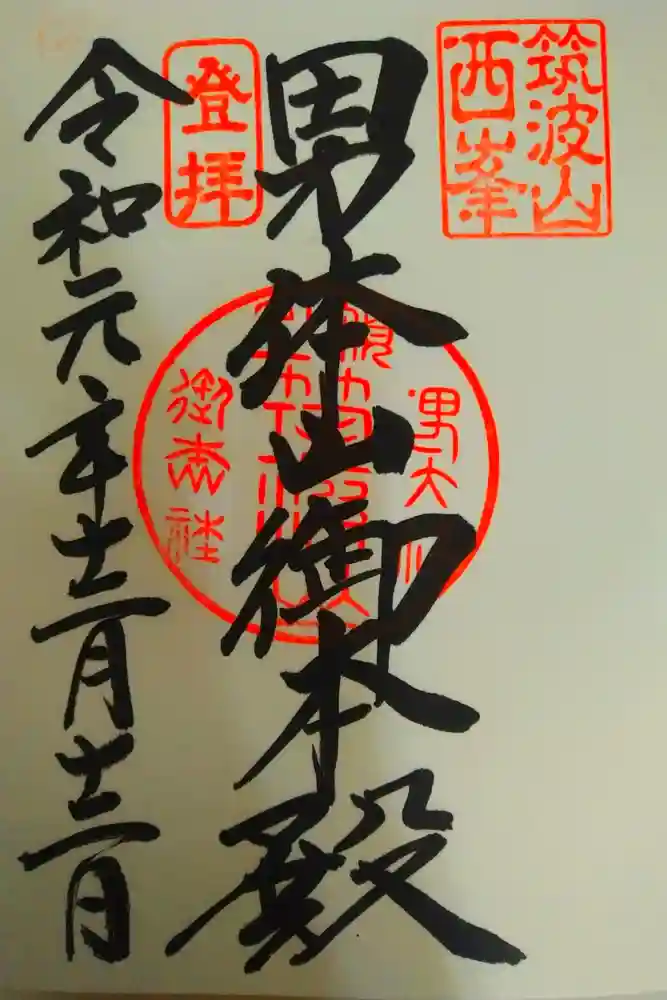 筑波山
西峯
登拝
男体山御本殿
男大
御本社
令和元年十二月十二日